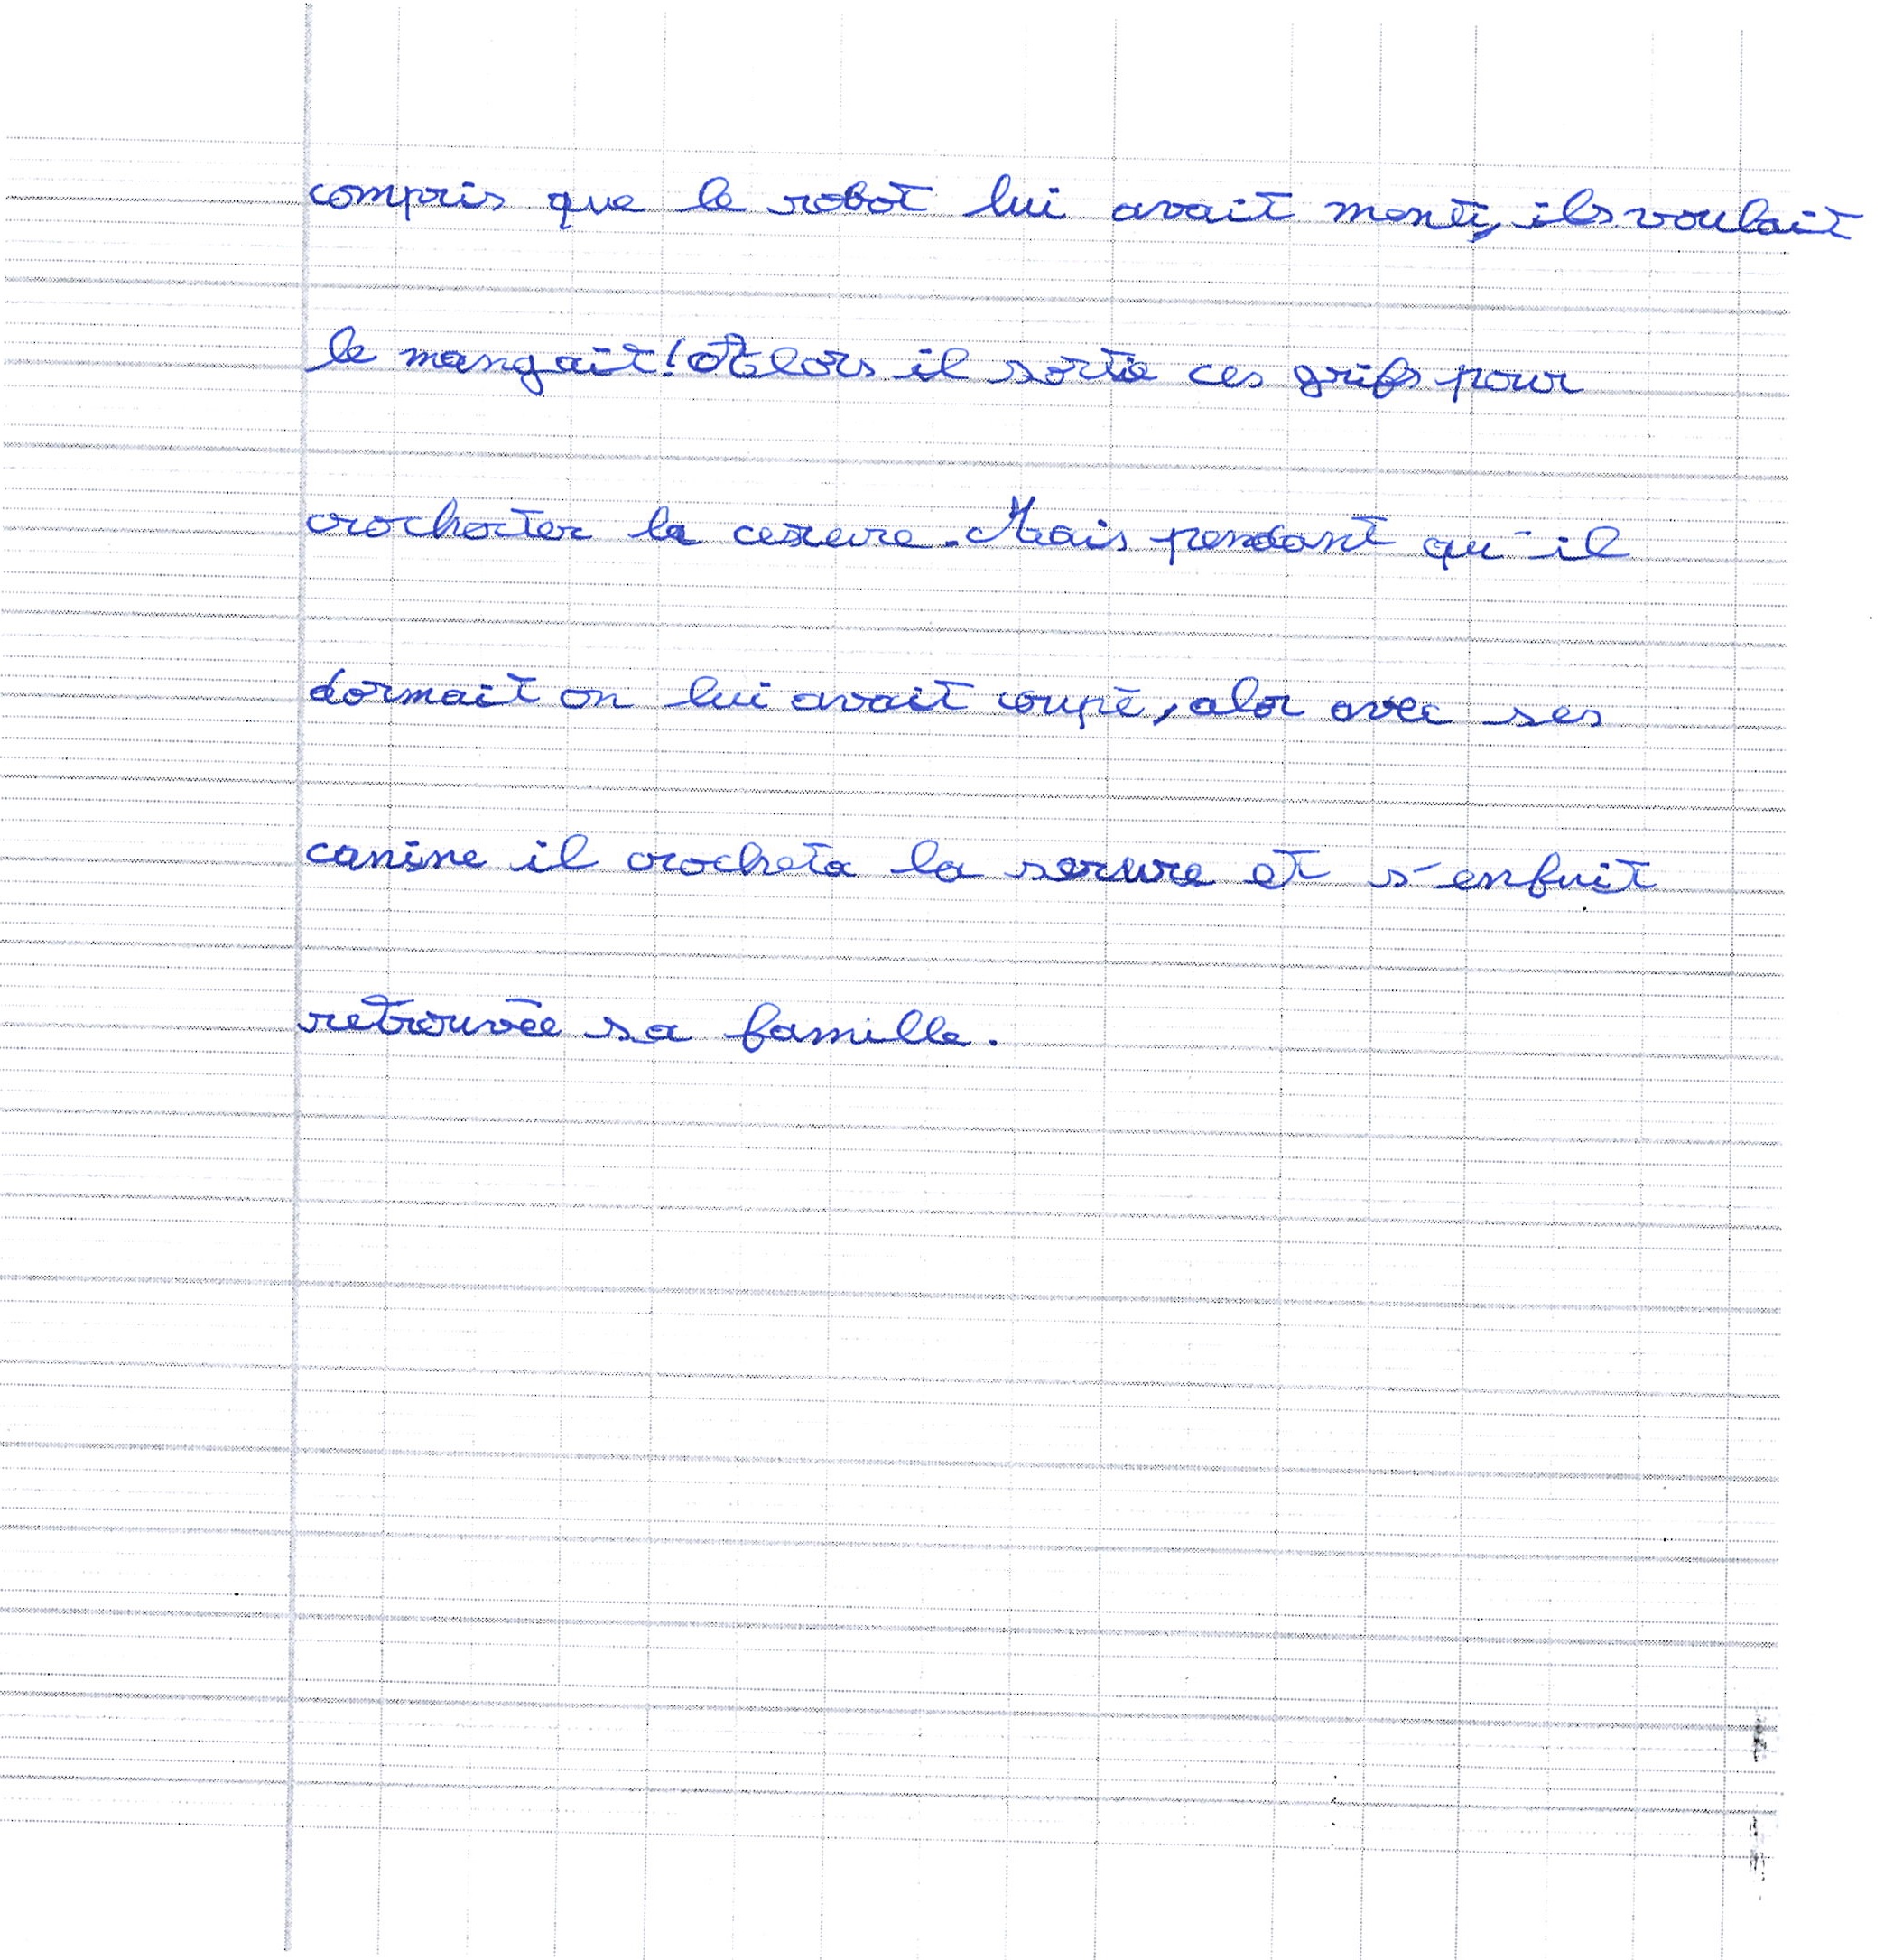 compris que le robot lui avait menti, ils voulait
le mangait! Alors il sortie ces grifs pour
crochorter la cereure. Mais pendant qu'il
dormait on lui avait coupé, alor avec ses
canine il crocheta la serure et s'enfuit
retrouvée sa famille.